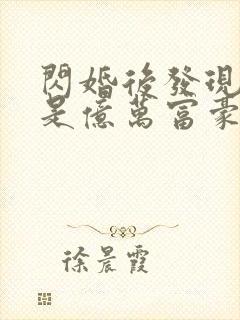 閃婚後發現
是億萬富豪
徐晨霞